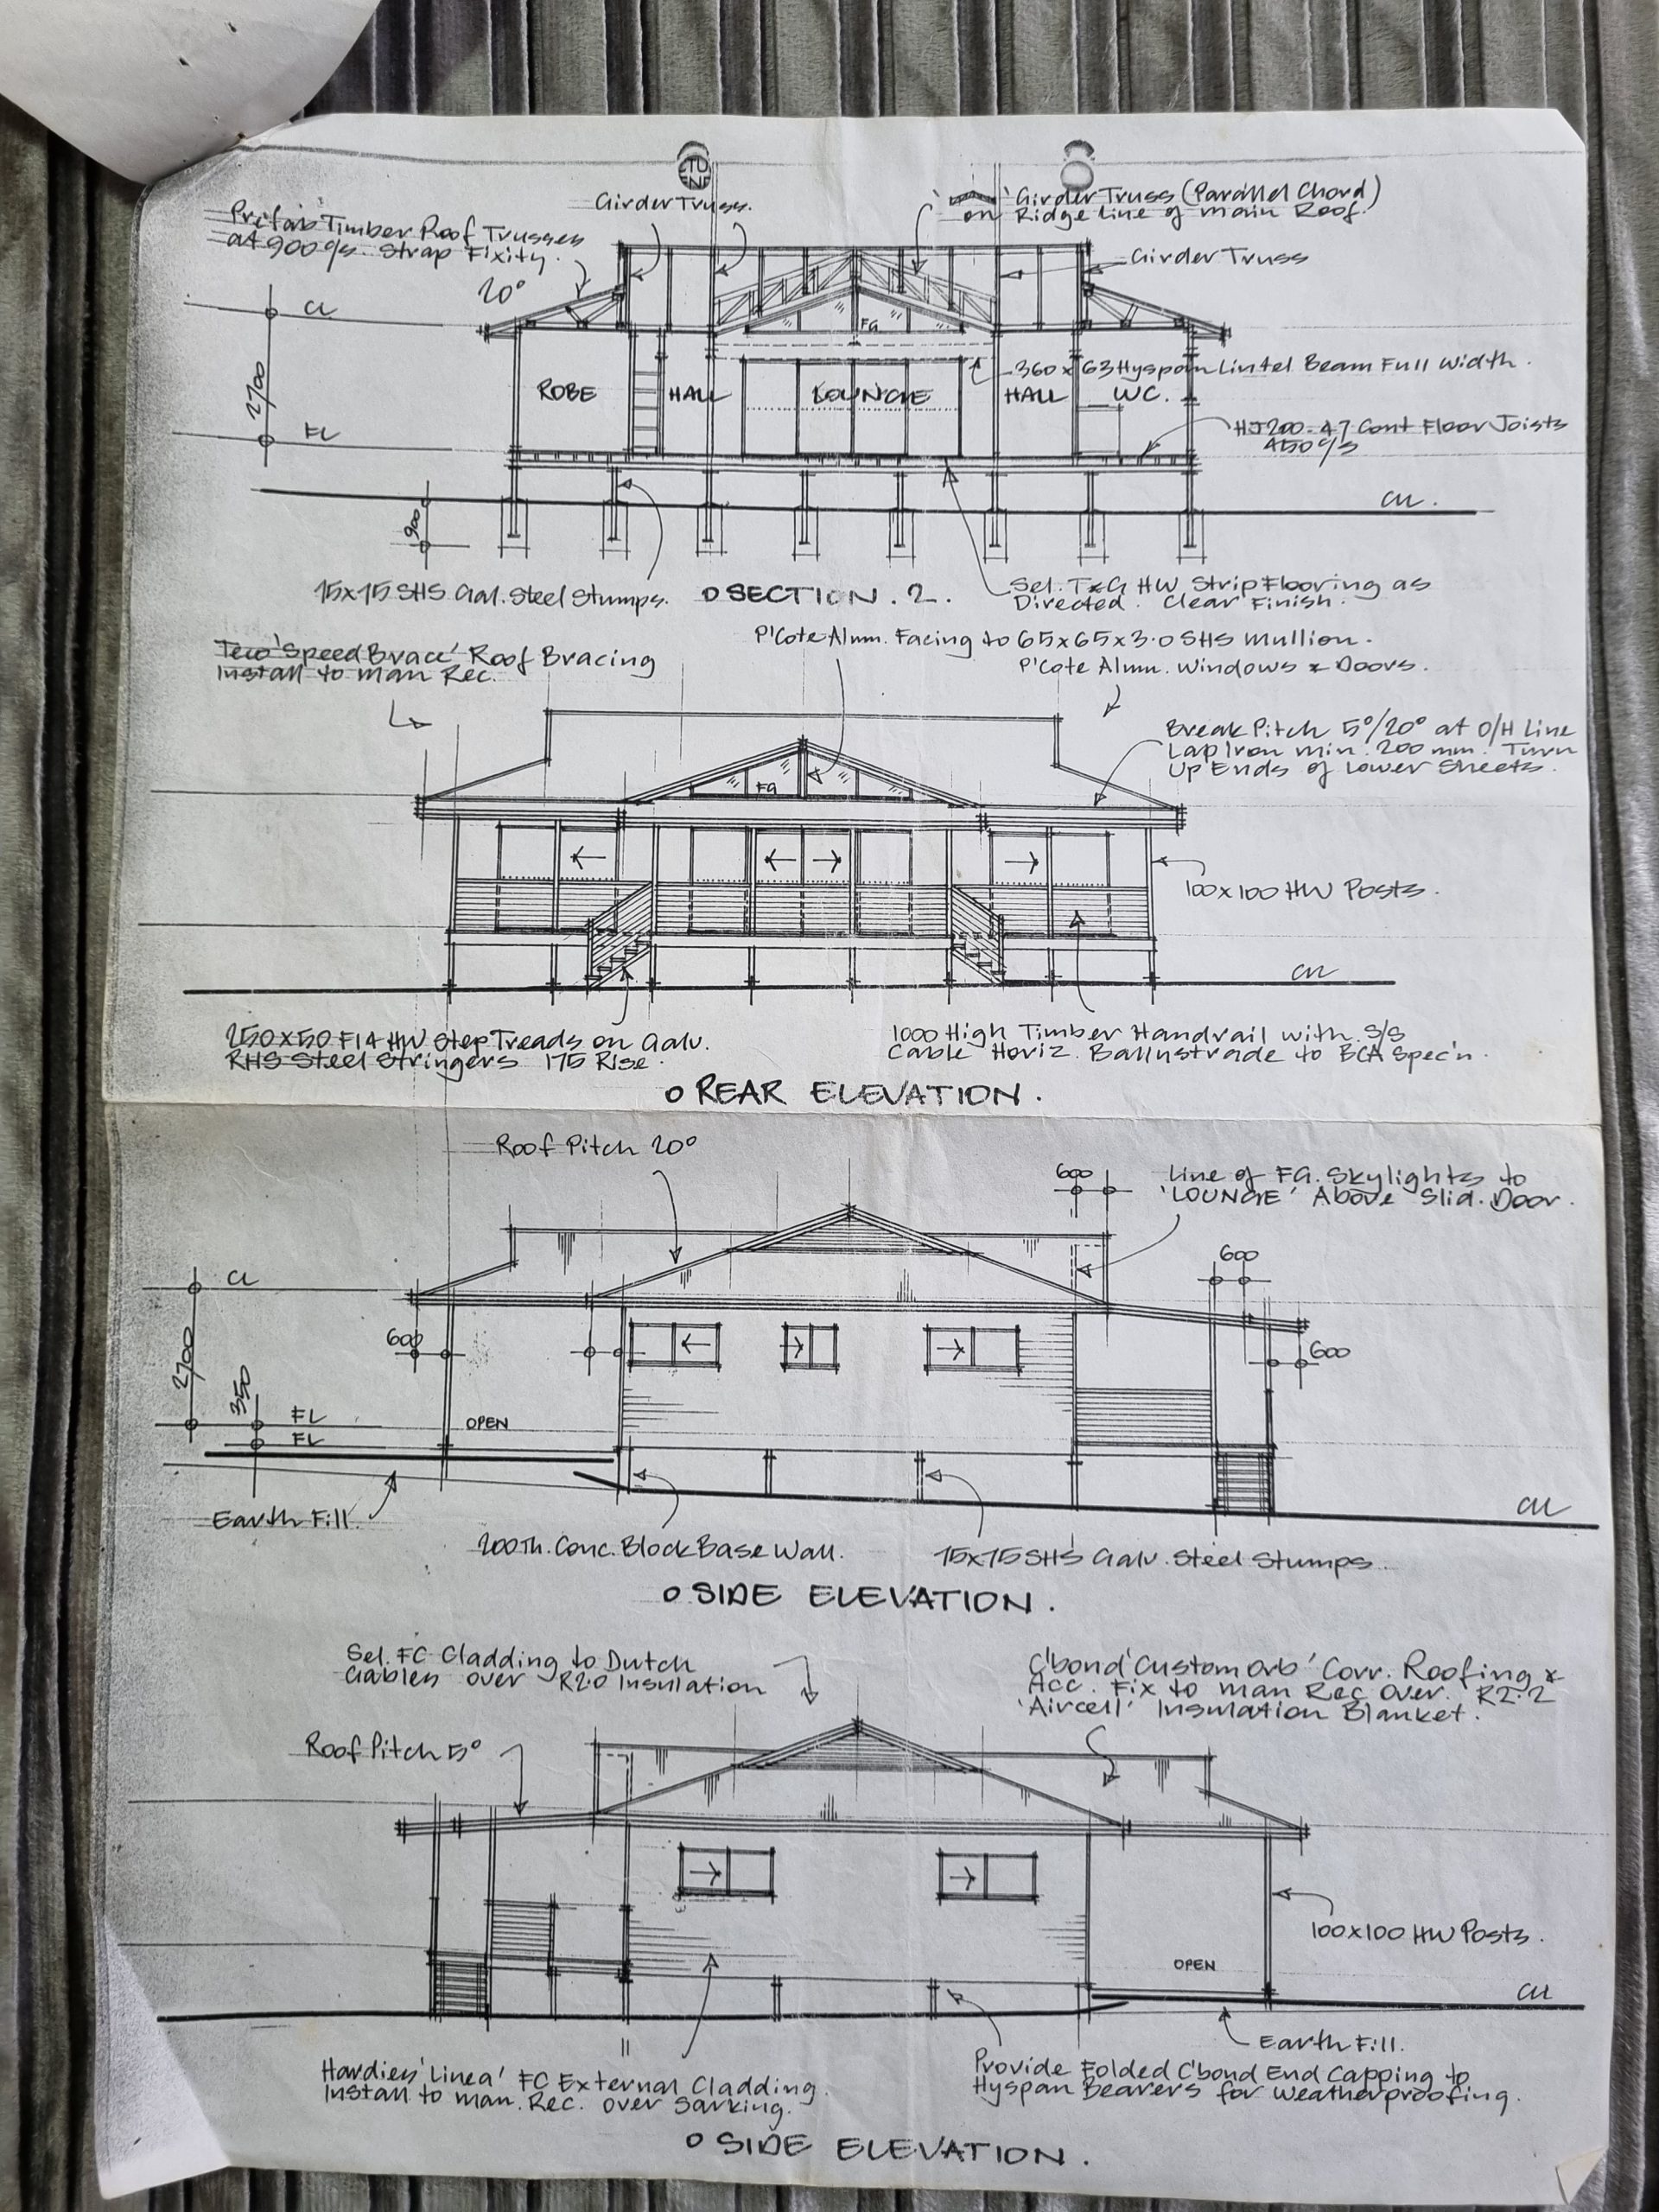 Girder Truss.
'Girder Truss (Parallel Chord)
on Ridge line of main Roof.
Prefab Timber Roof Trusses
at 900 c/s. Strap Fixity.
Girder Truss
20°
CL
2700
FG
360 x 63 Hyspan Lintel Beam Full Width.
ROBE
HALL
LOUNGE
HALL
WC.
FL
HJ200.47 Cont Floor Joists
450 c/s
GL.
900
75x75 SHS Gal. Steel Stumps.
SECTION. 2.
Sel. T&G HW Strip Flooring as
Directed. Clear Finish.
P'Cote Alum. Facing to 65x65x3.0 SHS Mullion.
P'Cote Alum. Windows & Doors.
'Speed Brace' Roof Bracing
Install to Man Rec.
Break Pitch 5°/20° at O/H Line
Lap Iron min. 200 mm. Turn
Up Ends of Lower Sheets.
FG
100x100 HW Posts.
GL
250x50 F14 HW Step Treads on Galv.
RHS Steel Stringers 175 Rise.
1000 High Timber Handrail with S/S
Cable Horiz. Ballustrade to BCA Spec'n.
REAR ELEVATION.
Roof Pitch 20°
600
Line of FG. Skylights to
'LOUNGE' Above Slid. Door.
600
CL
600
600
2700
350
FL
FL
OPEN
Earth Fill.
GL
200 Th. Conc. Block Base Wall.
75x75 SHS Galv. Steel Stumps.
SIDE ELEVATION.
Sel. FC Cladding to Dutch
Gables over R2.0 Insulation
C'bond 'Custom Orb' Corr. Roofing &
Acc. Fix to man Rec over. R2.2
'Aircell' Insulation Blanket.
Roof Pitch 5°
100x100 HW Posts.
OPEN
GL
Earth Fill.
Hardies 'Linea' FC External Cladding.
Install to man. Rec. over Sarking.
Provide Folded C'bond End Capping to
Hyspan Bearers for weatherproofing.
SIDE ELEVATION.